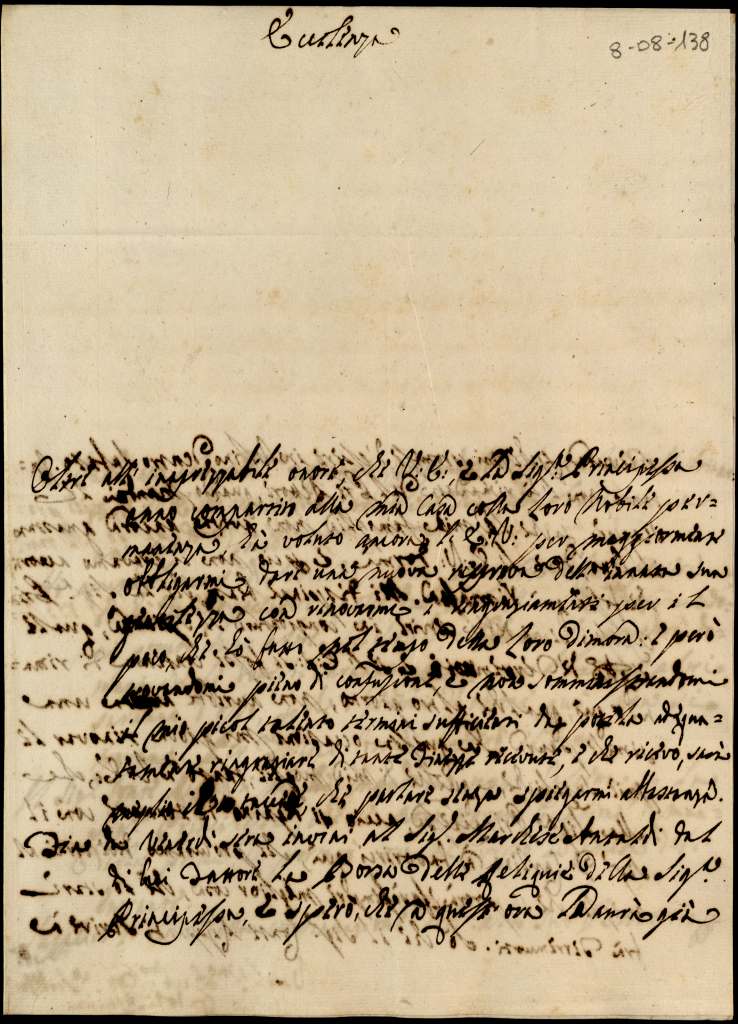 Eccellenza
8-08-138
Oltre all' inapprezzabile onore, che V: E:, e la Sig.ra Principessa
anno compartito alla mia Casa colla loro Nobile per=
manenza, hà voluto ancora l' E: V: per maggiormente
obbligarmi dare una nuova riprova dell' innata sua
gentilezza con rinovarmi i ringraziamenti per il
poco, che hò fatto nel tempo della loro dimora: e però
trovandomi pieno di confusione, e non somministrandomi
il mio picol talento termini sufficienti da poterla adequa=
tamente ringraziare di tante grazie ricevute, e che ricevo, sarà
meglio il tacere, che parlare senza spiegarmi abbastanza.
Fin da Venerdì sera inviai al Sig.r Marchese Antaldi dal
di lei Fattore la Borsa delle Reliquie della Sig.ra
Principessa, e spero, che a quest' ora l'aurà già